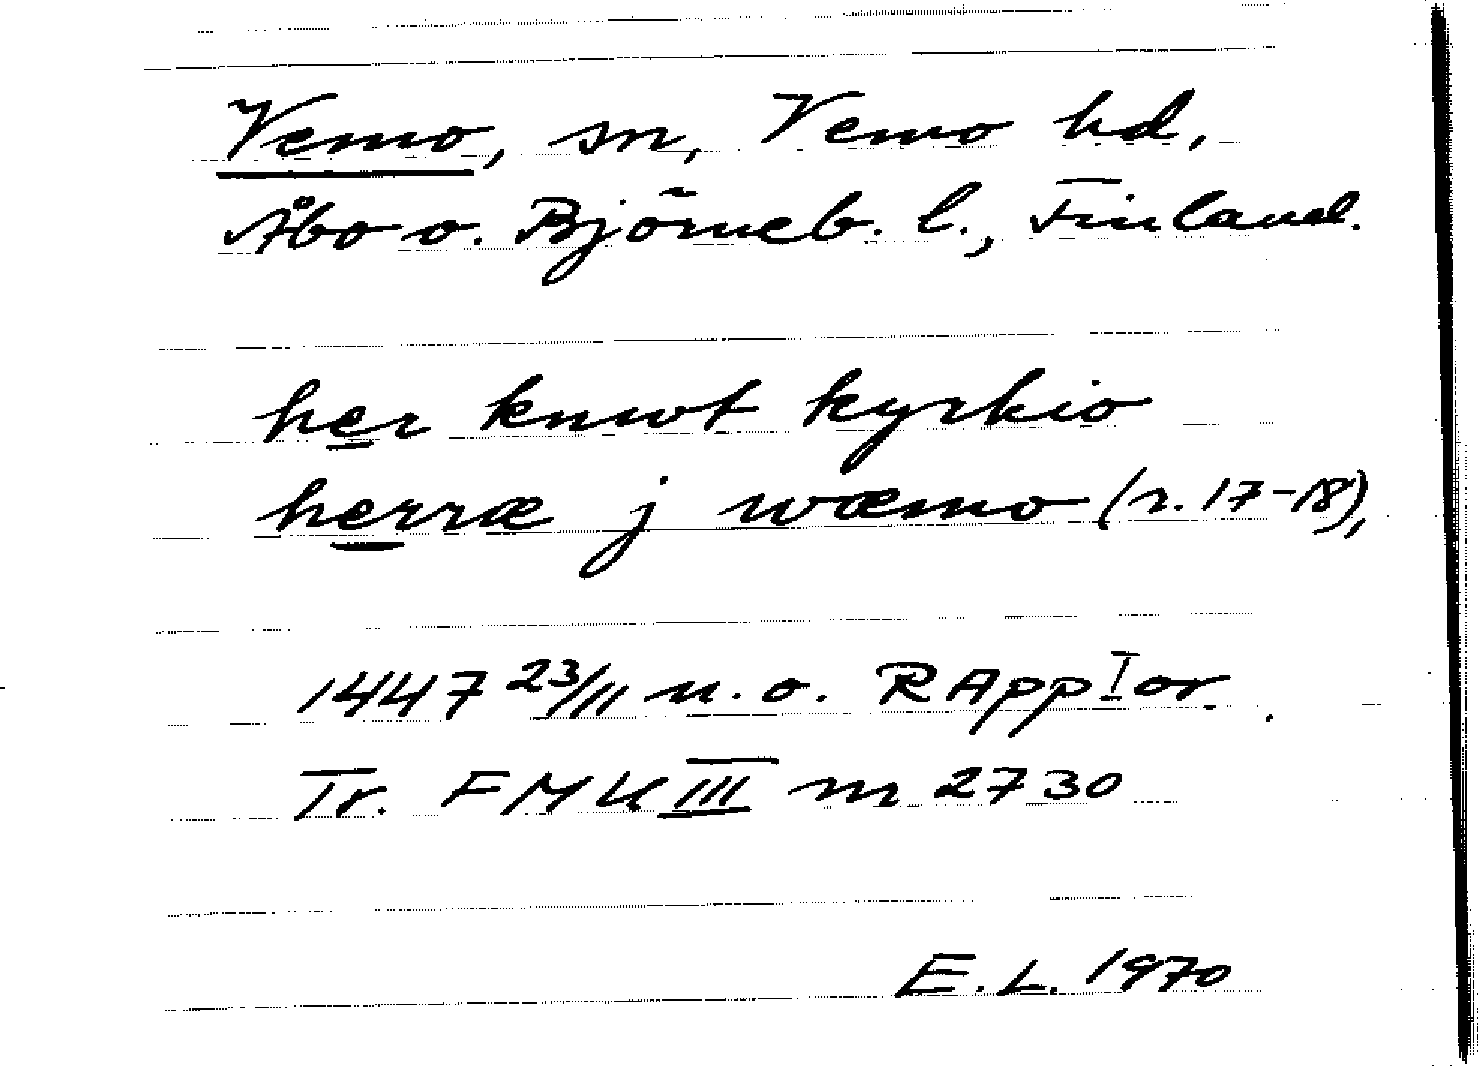 Vemo, sn, Vemo hd,
Åbo o. Björneb. l., Finland.
her knwt kyrkio
herræ j wæmo (r. 17-18),
1447 23/11 u.o. RApp I or.
Tr. FMU III nr 2730
E.L. 1970